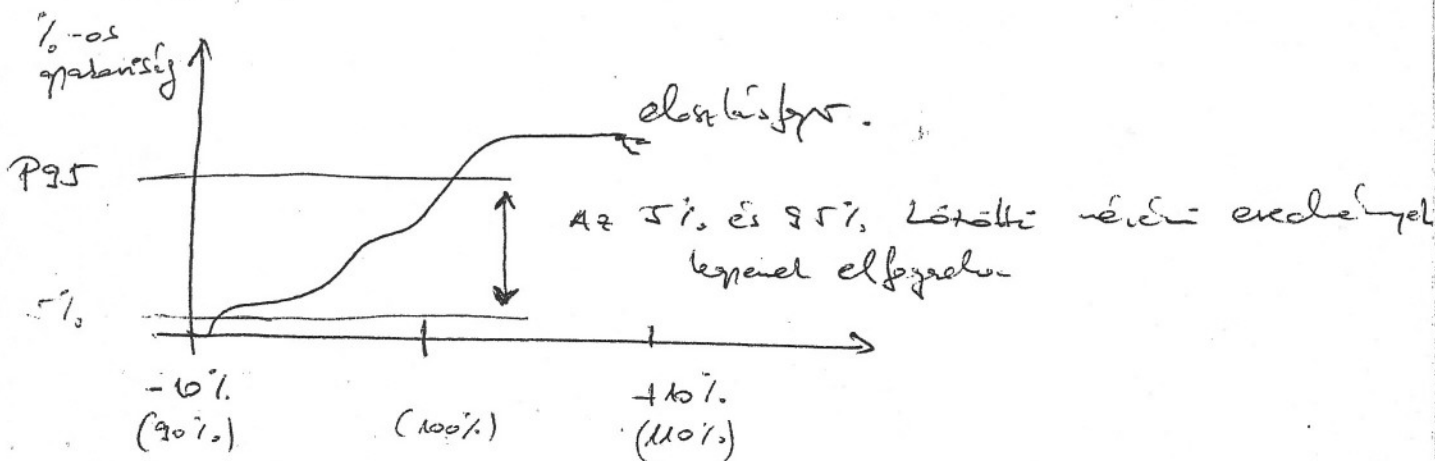 %-os
gyakoriság
eloszlásfgv.
P95
Az 5% és 95% közötti mérési eredmények
legyenek elfogadva
5%
-10% +10%
(90%) (100%) (110%)